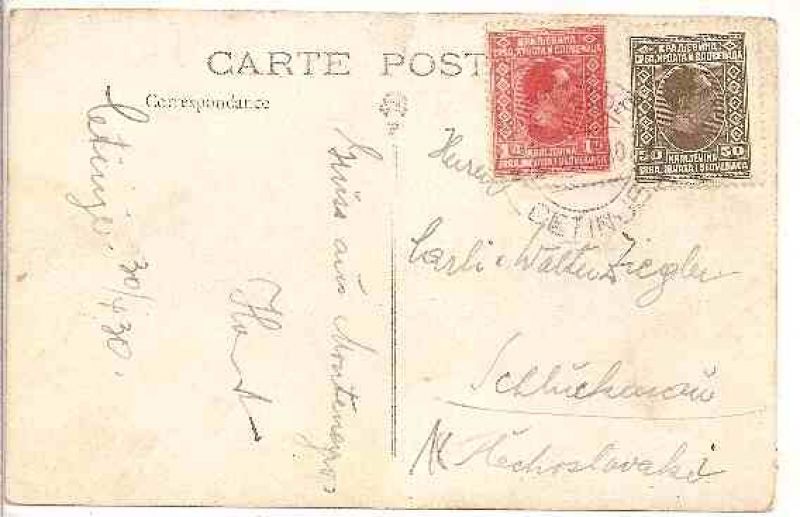 CARTE POST
Correspondance
Cetinje, 30/4 30.
Gruss aus Montenegro
КРАЉЕВИНА
СРБА, ХРВАТА И СЛОВЕНАЦА
1
KRALJEVINA
SRBA, HRVATA I SLOVENACA
КРАЉЕВИНА
СРБА, ХРВАТА И СЛОВЕНАЦА
50 50
KRALJEVINA
SRBA, HRVATA I SLOVENACA
CETINJE
Carli Walter Ziegler
Schluckenau